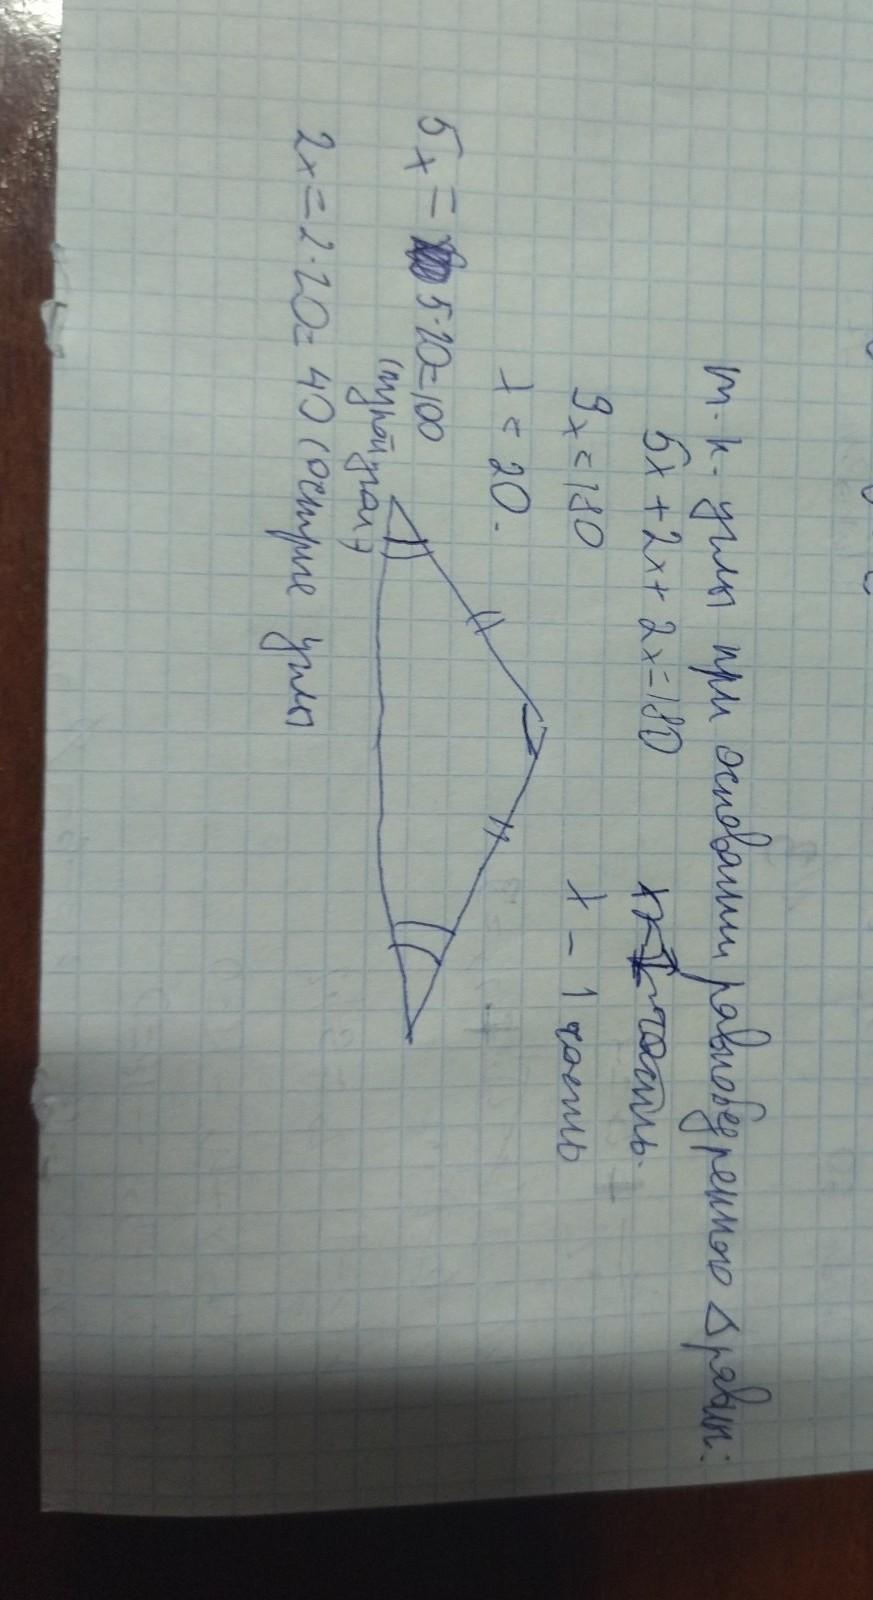 т.к. углы при основании равнобедренного Δ равны:
5x + 2x + 2x = 180
9x = 180
x – 1 часть
x = 20.
5x = 5·20 = 100
(тупой угол)
2x = 2·20 = 40 (острые углы